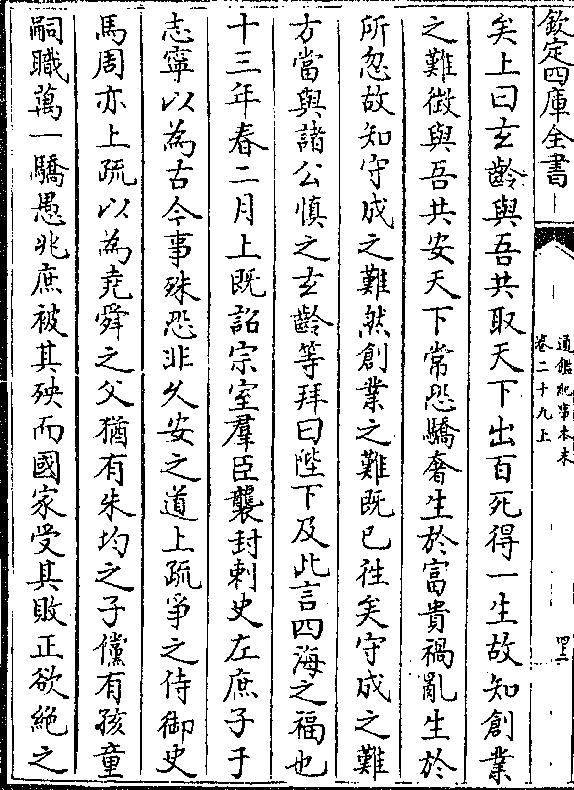 欽定四庫全書
通鑑紀事本末
卷二十九上
矣上曰玄齡與吾共取天下出百死得一生故知創業
之難徵與吾共安天下常恐驕奢生於富貴禍亂生於
所忽故知守成之難然創業之難既已往矣守成之難
方當與諸公慎之玄齡等拜曰陛下及此言四海之福也
十三年春二月上既詔宗室羣臣襲封刺史左庶子于
志寧以為古今事殊恐非久安之道上疏爭之侍御史
馬周亦上疏以為堯舜之父猶有朱均之子儻有孩童
嗣職萬一驕愚兆庶被其殃而國家受其敗正欲絶之